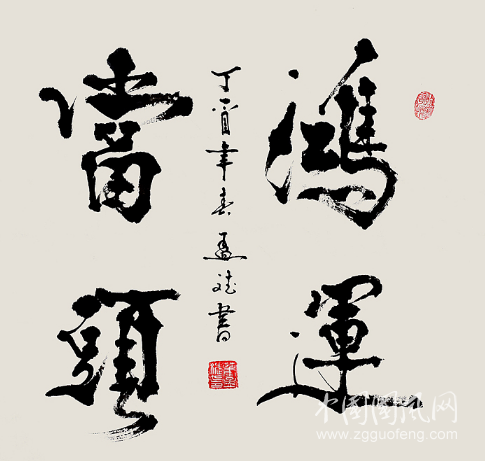 鴻運
當頭
丁酉年春 斌書
中国国风网
www.zgguofeng.com